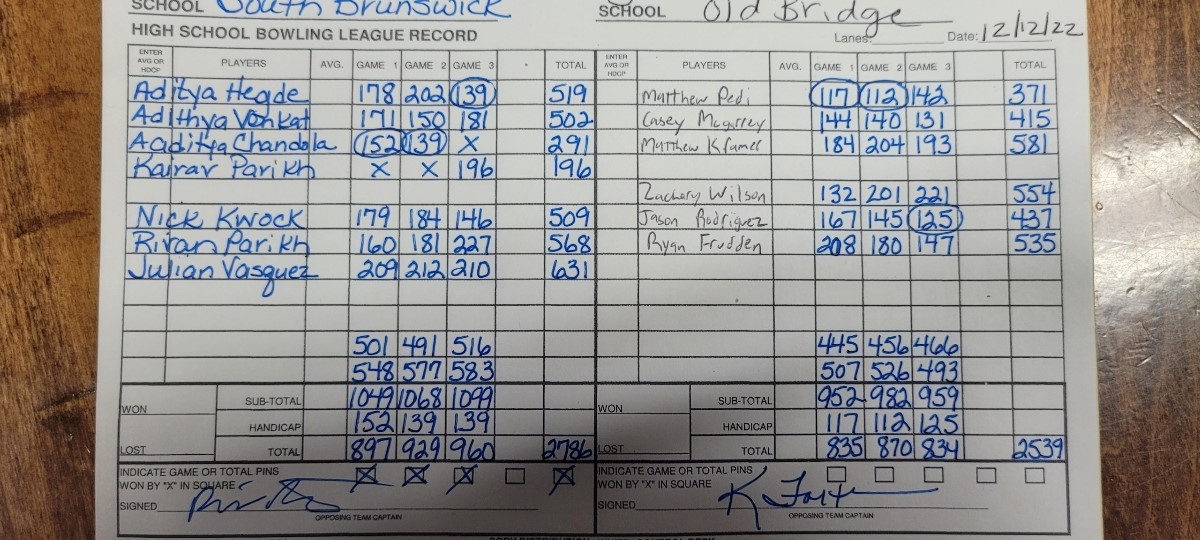 SCHOOL South Brunswick SCHOOL Old Bridge
HIGH SCHOOL BOWLING LEAGUE RECORD Lanes: Date: 12/12/22
ENTER AVG OR HDCP PLAYERS AVG. GAME 1 GAME 2 GAME 3 TOTAL ENTER AVG OR HDCP PLAYERS AVG. GAME 1 GAME 2 GAME 3 TOTAL
Aditya Hegde 178 202 139 519 Matthew Pedi 117 112 142 371
Adithya Venkat 171 150 181 502 Casey 144 140 131 415
Aaditya Chandola 152 139 X 291 Matthew Kramer 184 204 193 581
Kairav Parikh X X 196 196
Zachary Wilson 132 201 221 554
Nick Kwock 179 184 146 509 Jason Rodriguez 167 145 125 437
Rivan Parikh 160 181 227 568 Ryan Frudden 208 180 147 535
Julian Vasquez 209 212 210 631
501 491 516 445 456 466
548 577 583 507 526 493
WON SUB-TOTAL 1049 1068 1099 WON SUB-TOTAL 952 982 959
HANDICAP 152 139 139 HANDICAP 117 112 125
LOST TOTAL 897 929 960 2786 LOST TOTAL 835 870 834 2539
INDICATE GAME OR TOTAL PINS X X X X INDICATE GAME OR TOTAL PINS
WON BY "X" IN SQUARE WON BY "X" IN SQUARE
SIGNED SIGNED
OPPOSING TEAM CAPTAIN OPPOSING TEAM CAPTAIN